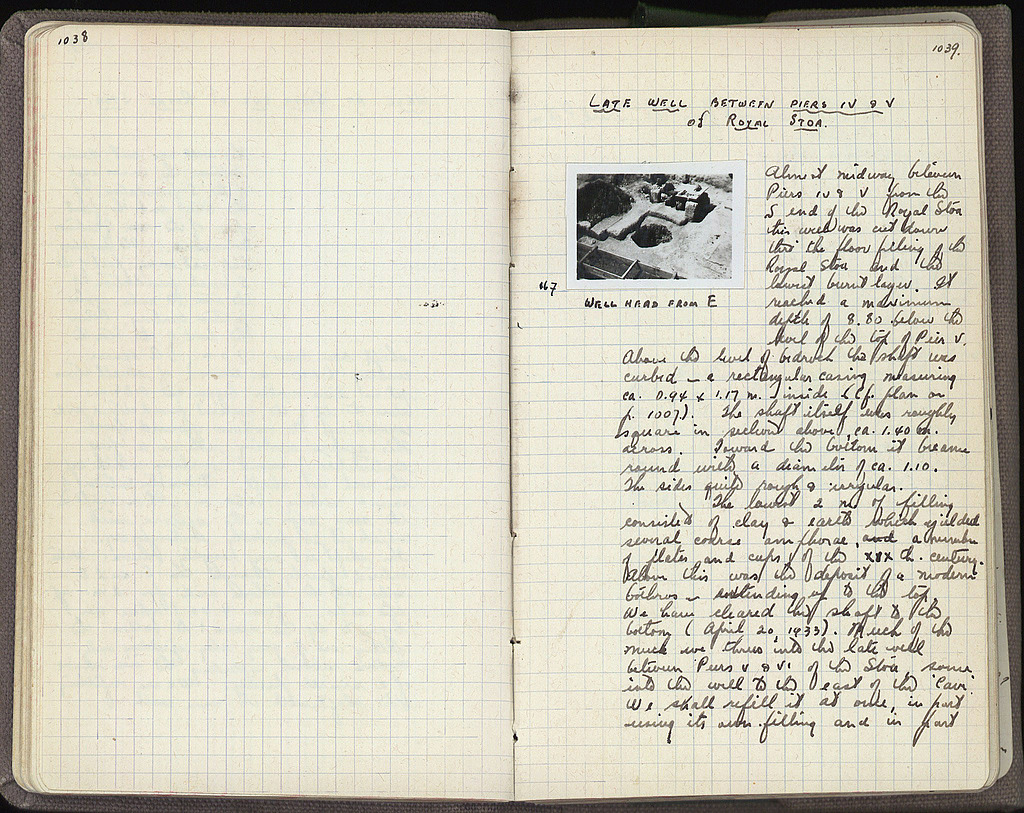 1038
1039.
LATE WELL BETWEEN PIERS IV & V
of ROYAL STOA.
Almost midway between
Piers IV & V from the
S end of the Royal Stoa
this well was cut down
thru the floor filling of the
Royal Stoa and the
lowest burnt layer. It
reached a maximum
depth of 8.80 below the
level of the top of Pier V.
WELL HEAD FROM E
Above the level of bedrock the shaft was
curbed – a rectangular casing measuring
ca. 0.94 x 1.17 m. inside (Cf. plan on
p. 1007). The shaft itself was roughly
square in section above, ca. 1.40 m.
across. Toward the bottom it became
round with a diameter of ca. 1.10.
The sides quite rough & irregular.
The lowest 2 m of filling
consisted of clay & earth which yielded
several coarse amphorae, and a number
of plates and cups of the th. century.
Above this was the deposit of a modern
bothros – extending up to the top.
We have cleared the shaft to the
bottom (April 20, 1933). Much of the
muck we threw into the late well
between Piers V & VI of the Stoa, some
into the well to the east of the
We shall refill it at once, in part
using its own filling and in part